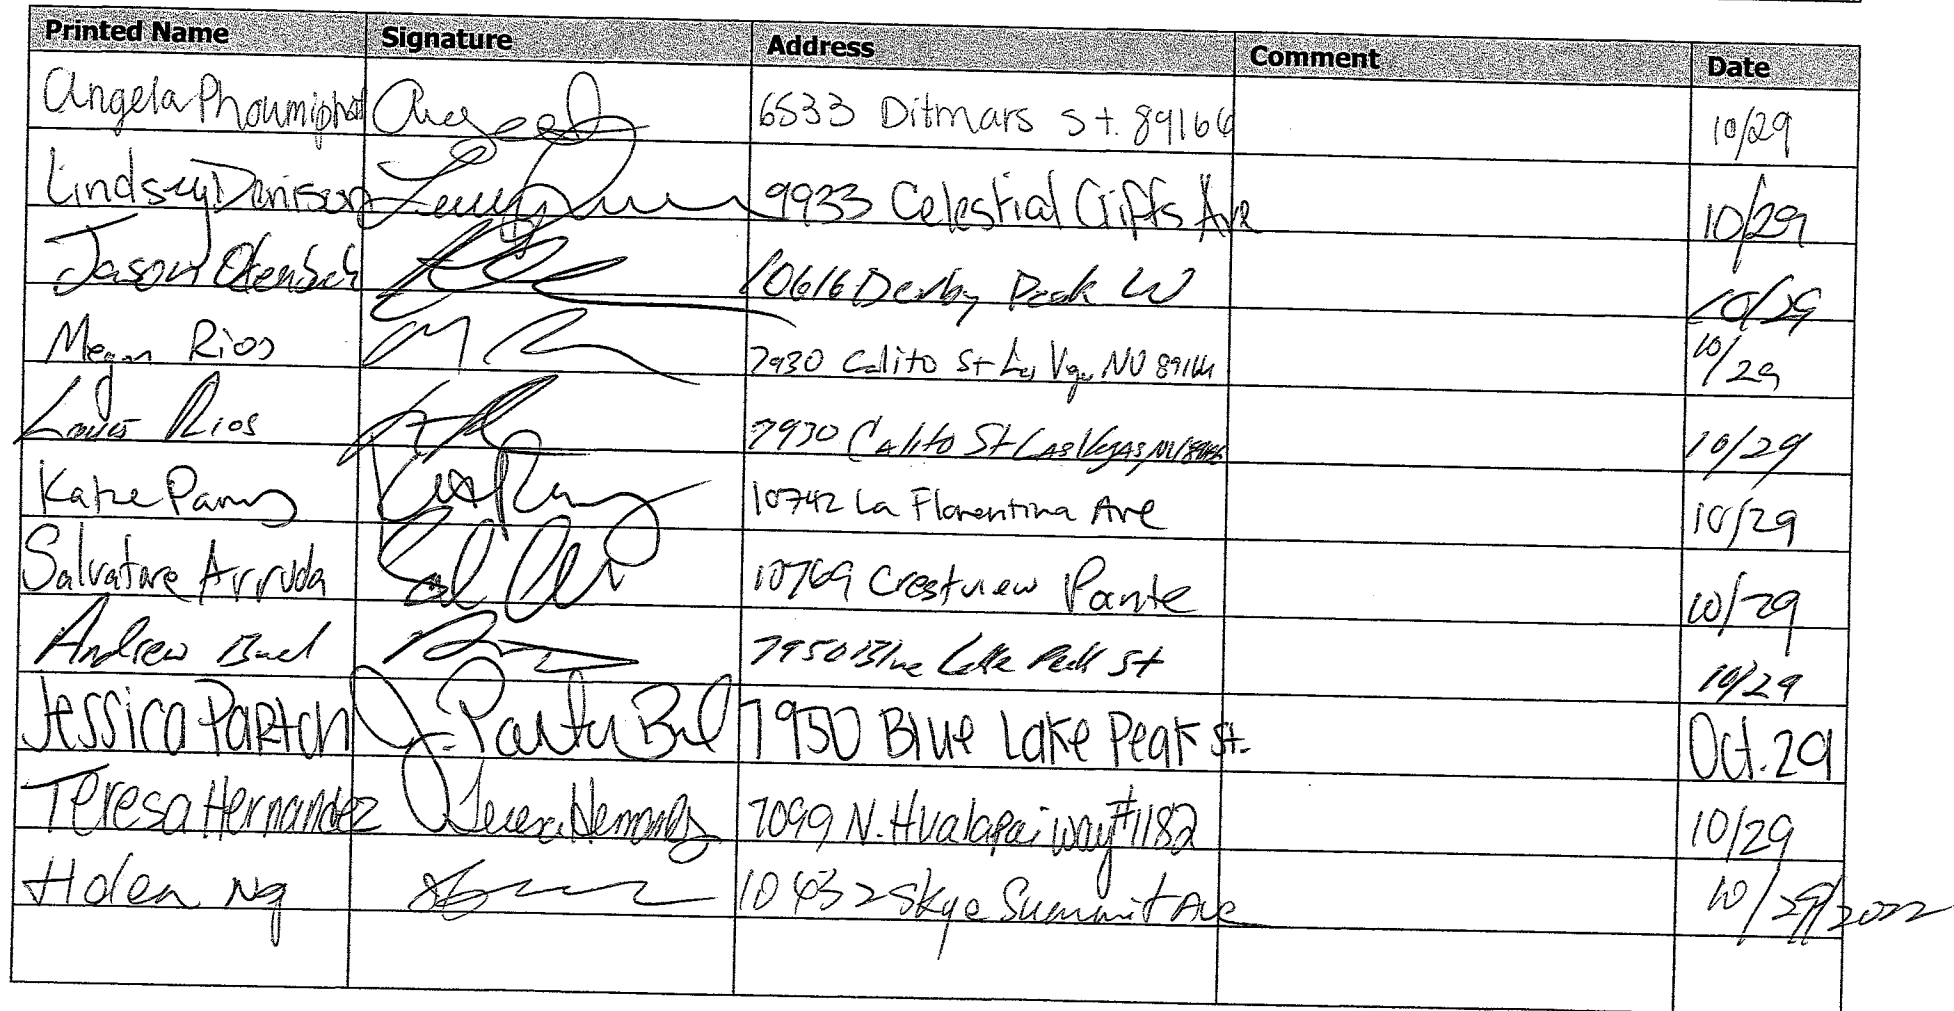 Printed Name Signature Address Comment Date
Angela 6533 Ditmars St. 89166 10/29
Lindsey Denison 9933 Celestial Cliffs Ave 10/29
Jason 10616 Derby Peak 10/29
Megan Rios 7930 Calito St Las Vegas NV 89166 10/29
Louis Rios 7930 Calito St Las Vegas, NV 89166 10/29
Katie 10742 La Florentina Ave 10/29
Salvatore Arruda 10769 Crestview Pointe 10/29
Andrew 7950 Blue Lake Peak St 10/29
Jessica Parton 7950 Blue Lake Peak St. Oct. 29
Teresa Hernandez 7099 N. Hualapai way #1182 10/29
Helen Ng 10432 Skye Summit Ave 10/29/2022